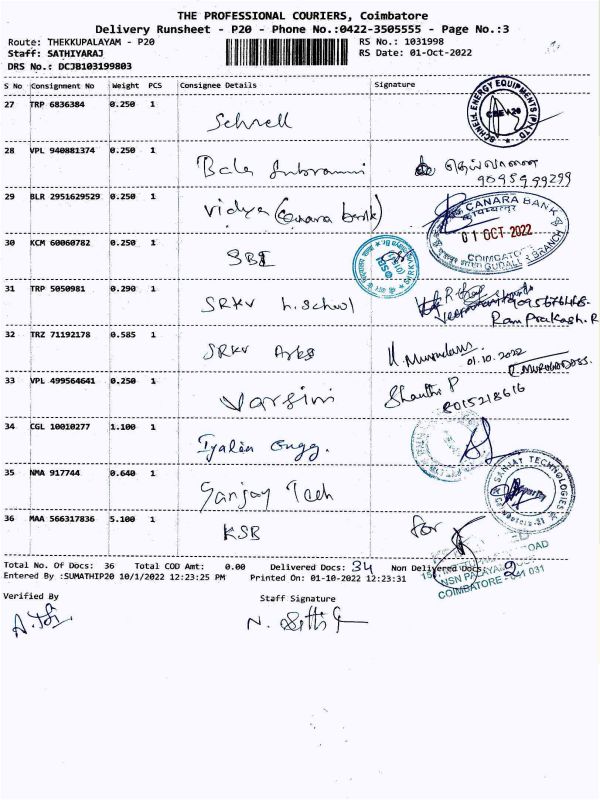 THE PROFESSIONAL COURIERS, Coimbatore
Delivery Runsheet - P20 - Phone No.:0422-3505555 - Page No.:3
Route: THEKKUPALAYAM - P20 RS No.: 1031998
Staff: SATHIYARAJ RS Date: 01-Oct-2022
DRS No.: DCJB103199803
S No Consignment No Weight PCS Consignee Details Signature
27 TRP 6836384 0.250 1 Schnell SCHNELL ENERGY EQUIPMENTS (P) LTD
28 VPL 940881374 0.250 1 Bala Subramani தெய்வானை
9095999299
29 BLR 2951629529 0.250 1 Vidya (Canara bank) CANARA BANK
01 OCT 2022
COIMBATORE
GUDALUR BRANCH
30 KCM 60060782 0.250 1 SBI SBI
31 TRP 5050981 0.290 1 SRKV h.school
Ram Prakash.R
32 TRZ 71192178 0.585 1 SRKV Arts 01.10.2022
33 VPL 499564641 0.250 1 Varsini Shanthi P
8015218616
34 CGL 10010277 1.100 1 Engg.
35 NMA 917744 0.640 1 Sanjay Tech SANJAY TECHNOLOGIES
36 MAA 566317836 5.100 1 KSB for
Total No. Of Docs: 36 Total COD Amt: 0.00 Delivered Docs: 34 Non Delivered Docs: 2
Entered By :SUMATHIP20 10/1/2022 12:23:25 PM Printed On: 01-10-2022 12:23:31
NSN PALAYAM
COIMBATORE - 641 031
Verified By Staff Signature